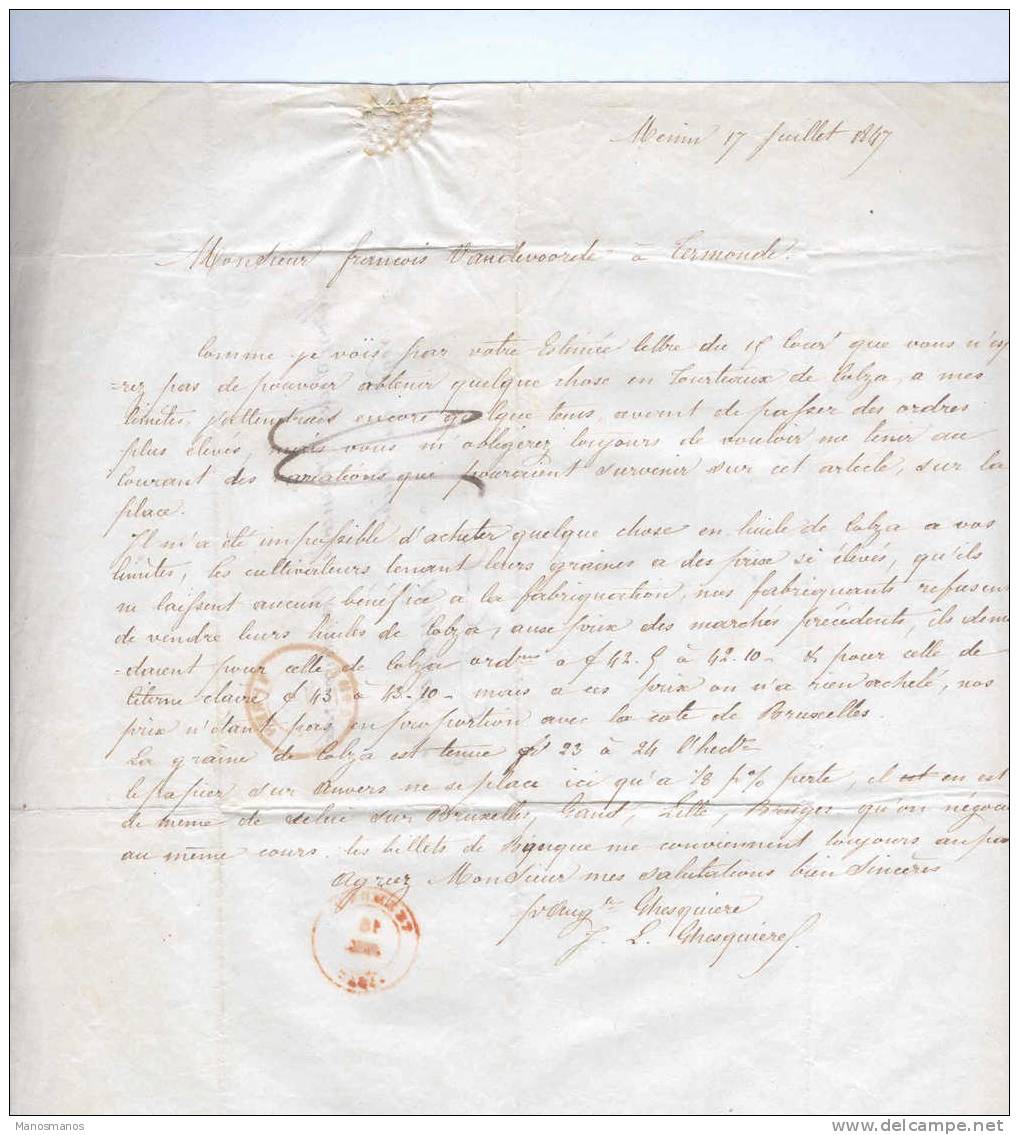 Menin 17 Juillet 1847
Monsieur françois Vandevoorde à Termonde.
Comme je vois par votre Estimée lettre du 15 Cour^t que vous n'esp
=rez pas de pouvoir obtenir quelque chose en Tourteaux de Colza, a mes
limites, j'attendrais encore quelque tems, avant de passer des ordres
plus élevés, mais vous m'obligerez toujours de vouloir me tenir au
Courant des variations qui pouraient survenir sur cet article, sur la
place.
Il m'a été impossible d'acheter quelque chose en huile de Colza a vos
limites, les cultivateurs tenant leurs graines a des prix si élevés, qu'ils
ni laissent aucun bénéfice a la fabriquation, nos fabriquants refusent
de vendre leurs huiles de Colza, aux prix des marchés précédents, ils dem
-daient pour celle de Colza ord^res a f 42.5 à 42.10 - & pour celle de
Citerne claire f 43 à 43.10 - mais a ces prix on n'a rien acheté, nos
prix n'étant pas en proportion avec la cote de Bruxelles.
La graine de Colza est tenue fr 23 à 24 l'hect^re
le papier sur anvers ne se place ici qu'a 1/8 p% perte, il est en est
de même de celui sur Bruxelles, Gand, Lille, Bruges qu'on négocie
au même cours. les billets de Banque me conviennent toujours au pair
Agréez Monsieur mes salutations bien sincères
pr Aug^te Ghesquiere
J. L. Ghesquiere
Manosmanos
www.delcampe.net